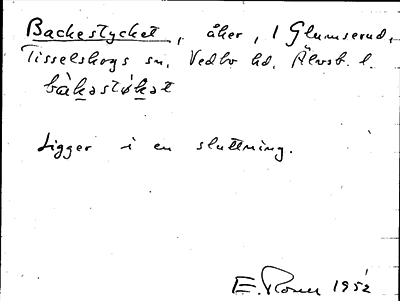 Backestycket, åker, 1 Glumserud,
Tisselskogs sn, Vedbo hd, Älvsb. l.
bàkəstykət
Ligger i en sluttning.
E. Rosell 1952